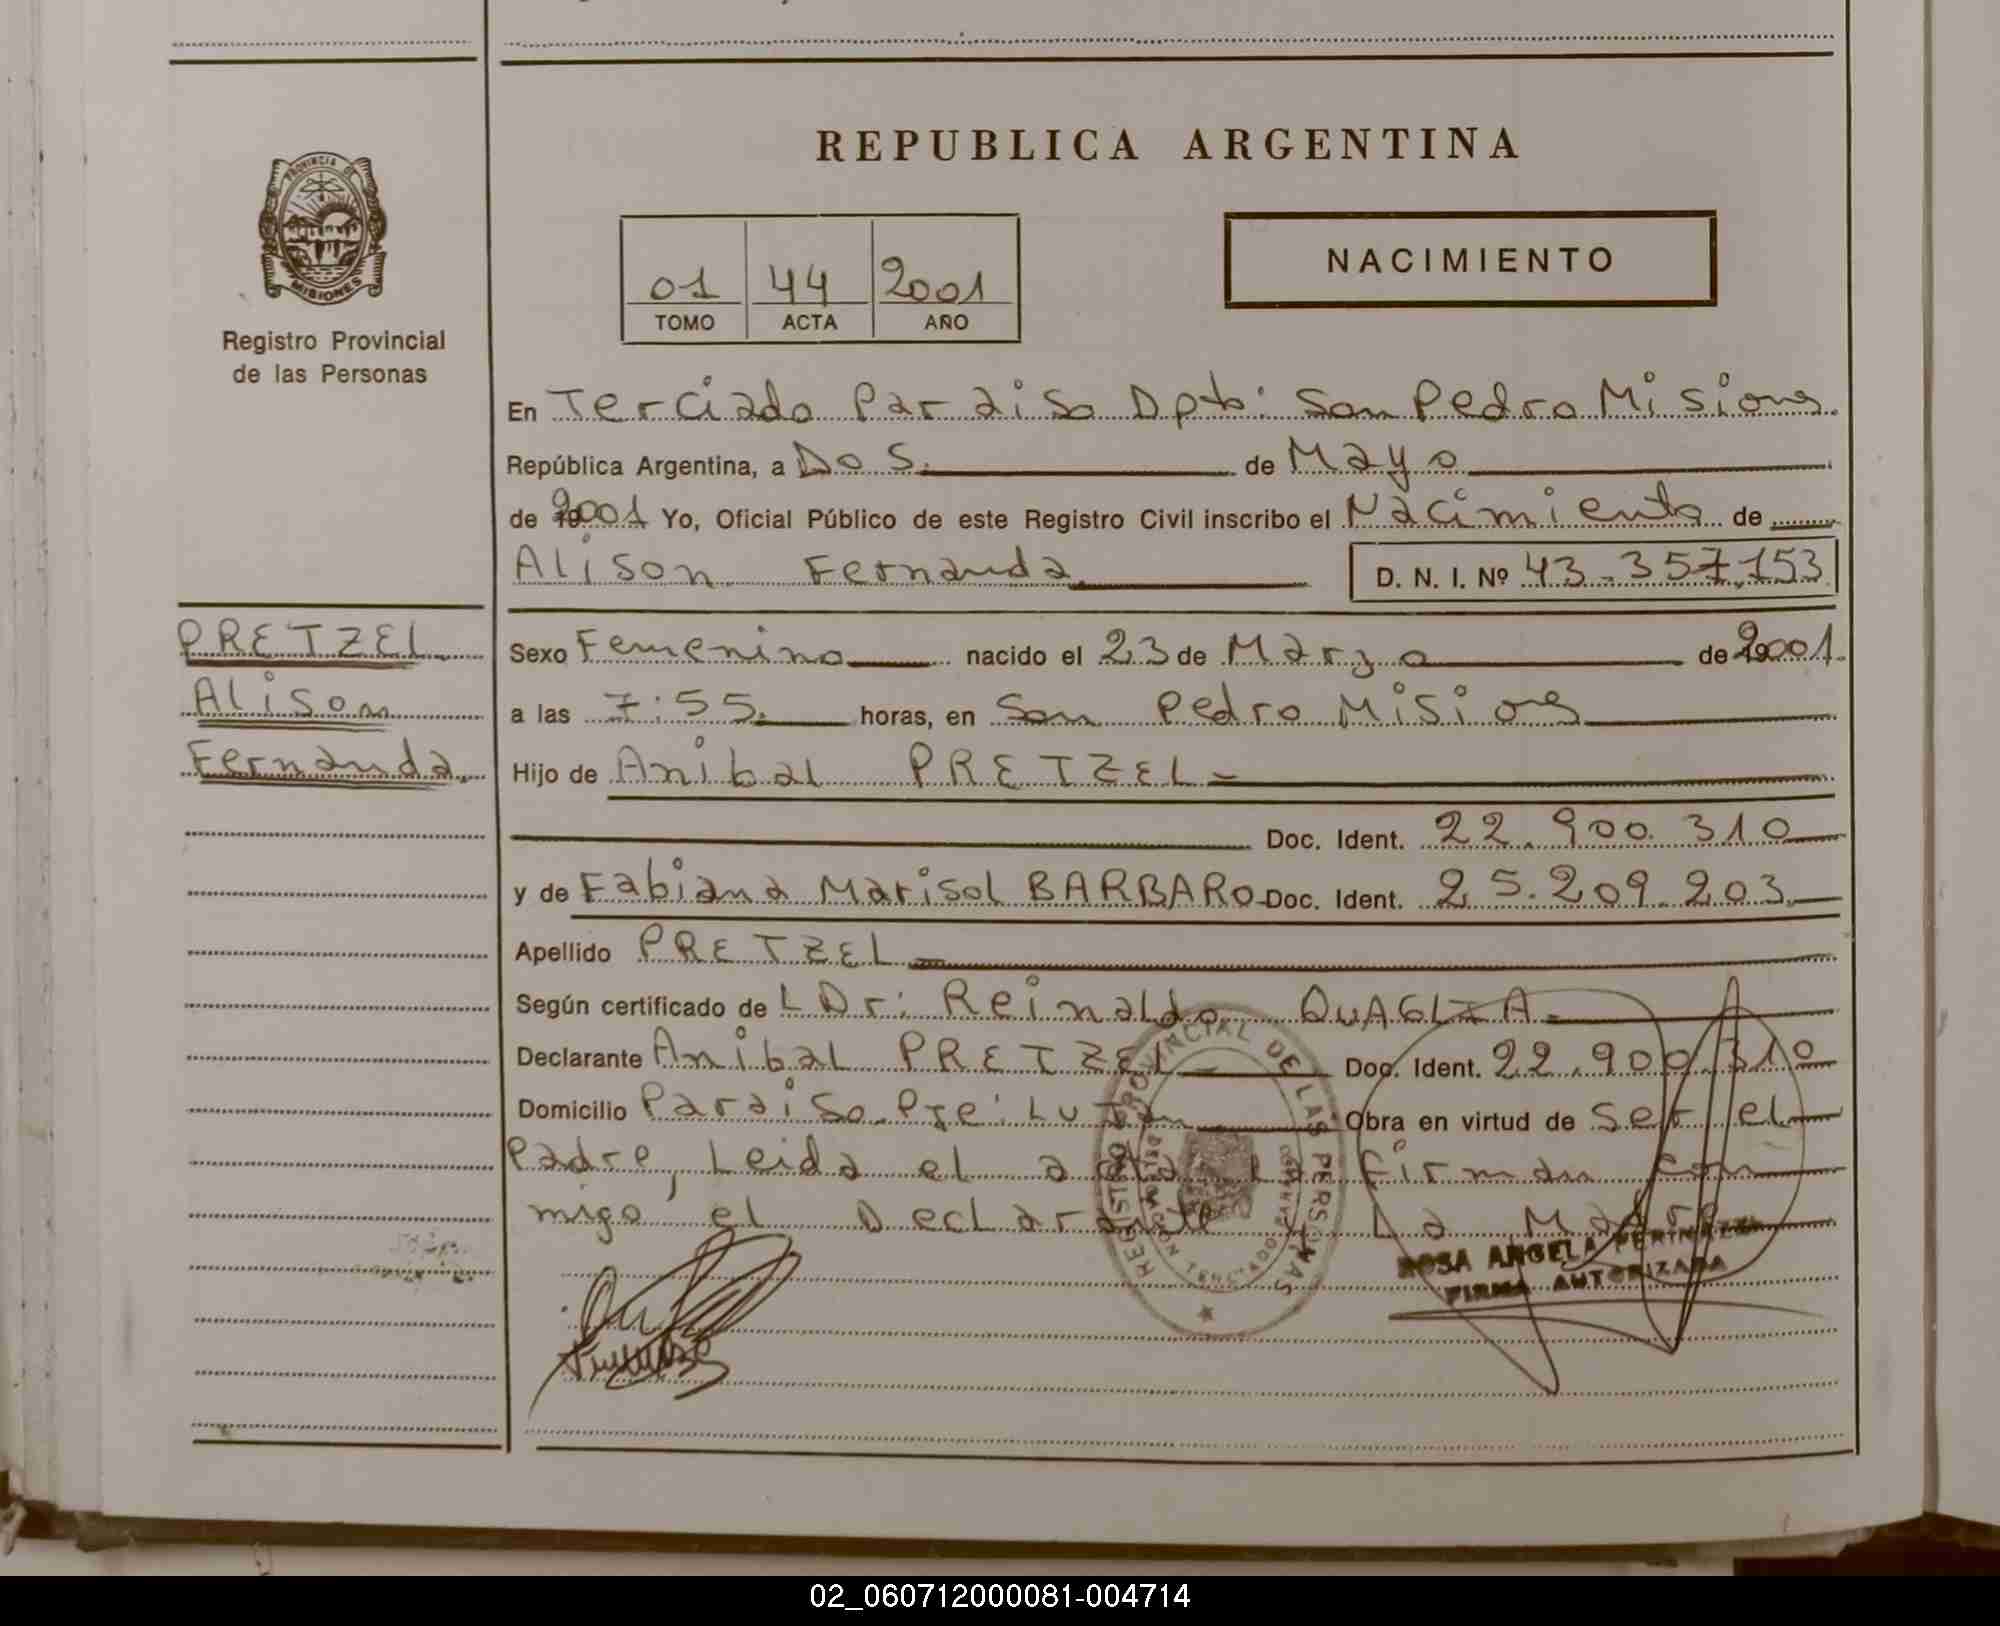 REPUBLICA ARGENTINA
PROVINCIA DE
MISIONES
Registro Provincial
de las Personas
01 44 2001
TOMO ACTA AÑO
NACIMIENTO
En Terciado Paraiso Dpto: San Pedro Misiones
República Argentina, a Dos de Mayo
de 2001 Yo, Oficial Público de este Registro Civil inscribo el Nacimiento de
Alison Fernanda D. N. I. Nº 43.357.153
PRETZEL
Alison
Fernanda
Sexo Femenino nacido el 23 de Marzo de 2001.
a las 7:55 horas, en San Pedro Misiones
Hijo de Anibal PRETZEL
Doc. Ident. 22.900.310
y de Fabiana Marisol BARBARO Doc. Ident. 25.209.203
Apellido PRETZEL
Según certificado de L Dr: Reinaldo QUAGLIA
Declarante Anibal PRETZEL Doc. Ident. 22.900.310
Domicilio Paraiso. Pje: Lujan Obra en virtud de ser el
Padre, Leida el acta La Firman con
migo el Declarante y La Madre
REGISTRO PROVINCIAL DE LAS PERSONAS
ROSA ANGELA
FIRMA AUTORIZADA
02_060712000081-004714